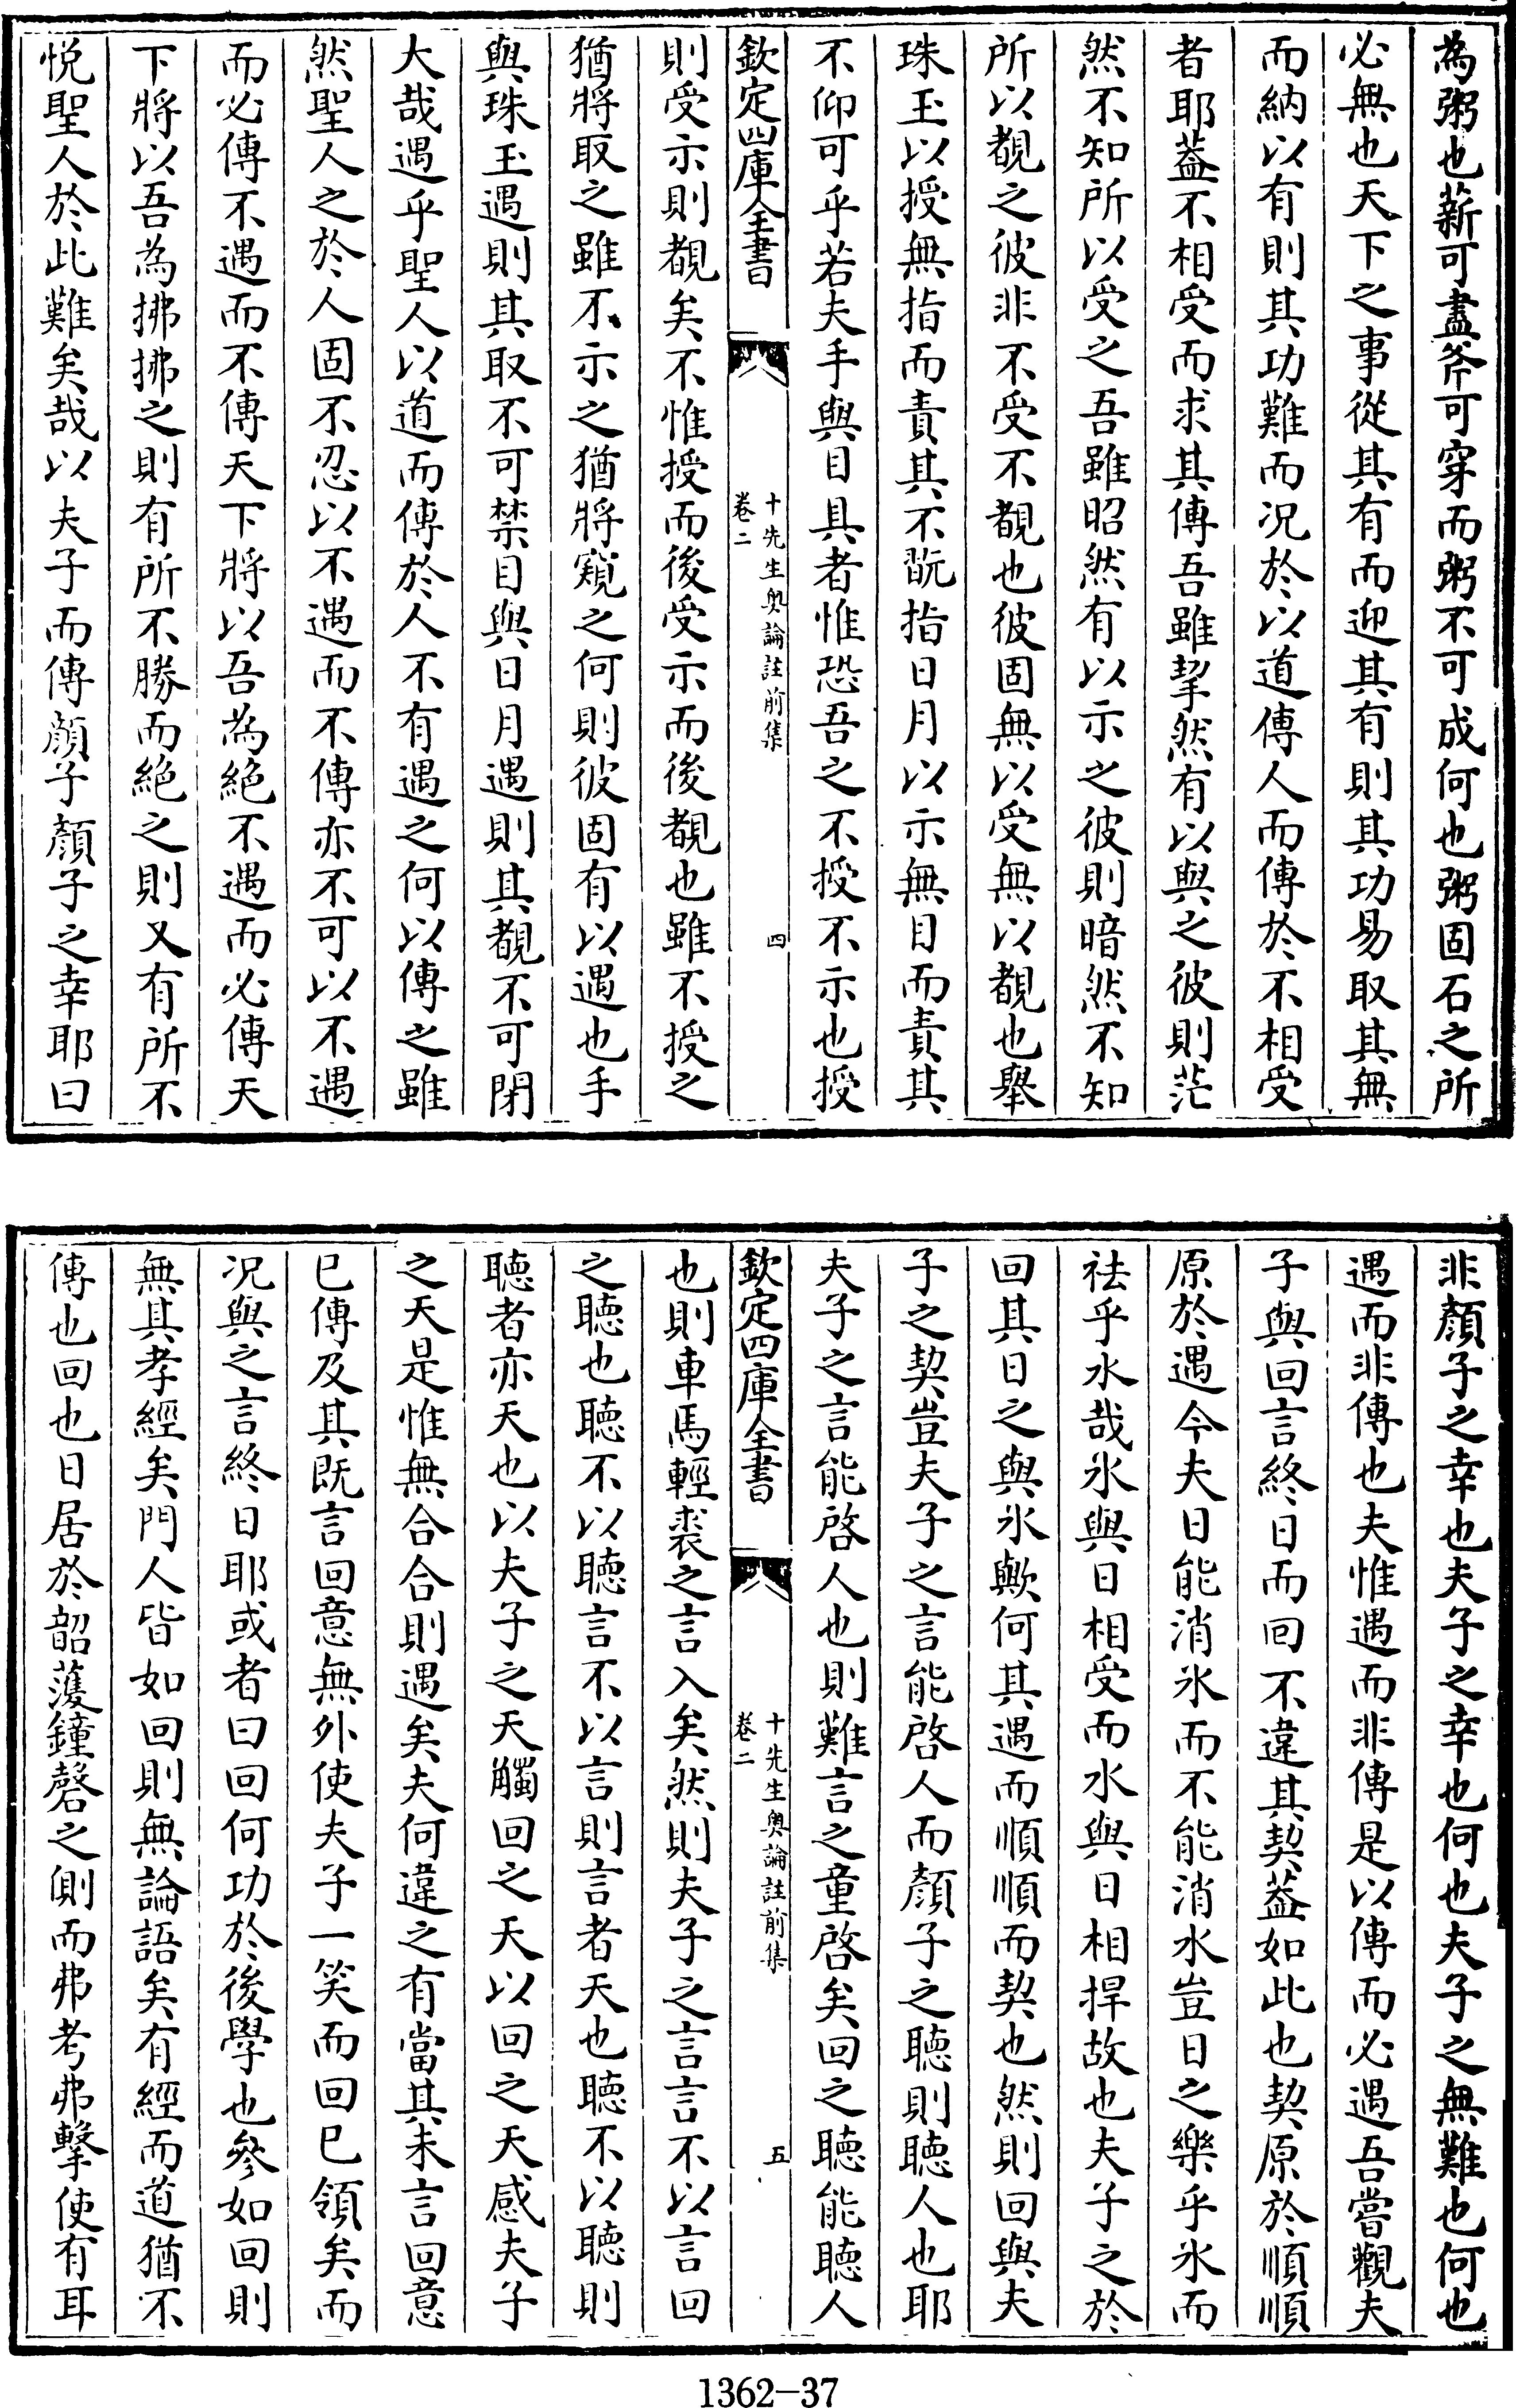 為粥也薪可盡斧可穿而粥不可成何也粥固石之所
必無也天下之事從其有而迎其有則其功易取其無
而納以有則其功難而况於以道傳人而傳於不相受
者耶葢不相受而求其傳吾雖挈然有以與之彼則茫
然不知所以受之吾雖昭然有以示之彼則暗然不知
所以覩之彼非不受不覩也彼固無以受無以覩也舉
珠玉以授無指而責其不翫指日月以示無目而責其
不仰可乎若夫手與目具者惟恐吾之不授不示也授
欽定四庫全書
十先生奥論註前集
卷二
四
則受示則覩矣不惟授而後受示而後覩也雖不授之
猶將取之雖不示之猶將窺之何則彼固有以遇也手
與珠玉遇則其取不可禁目與日月遇則其覩不可閉
大哉遇乎聖人以道而傳於人不有遇之何以傳之雖
然聖人之於人固不忍以不遇而不傳亦不可以不遇
而必傳不遇而不傳天下將以吾為絶不遇而必傳天
下將以吾為拂拂之則有所不勝而絶之則又有所不
悦聖人於此難矣哉以夫子而傳顔子顔子之幸耶曰
非顔子之幸也夫子之幸也何也夫子之無難也何也
遇而非傳也夫惟遇而非傳是以傳而必遇吾嘗觀夫
子與回言終日而回不違其契葢如此也契原於順順
原於遇今夫日能消氷而不能消水豈日之樂乎氷而
祛乎水哉氷與日相受而水與日相捍故也夫子之於
回其日之與氷歟何其遇而順順而契也然則回與夫
子之契豈夫子之言能啓人而顔子之聽則聽人也耶
夫子之言能啓人也則難言之童啓矣回之聽能聽人
欽定四庫全書
十先生奥論註前集
卷二
五
也則車馬輕裘之言入矣然則夫子之言言不以言回
之聽也聽不以聽言不以言則言者天也聽不以聽則
聽者亦天也以夫子之天觸回之天以回之天感夫子
之天是惟無合合則遇矣夫何違之有當其未言回意
已傳及其既言回意無外使夫子一笑而回已領矣而
况與之言終日耶或者曰回何功於後學也參如回則
無其孝經矣門人皆如回則無論語矣有經而道猶不
傳也回也日居於韶濩鐘磬之側而弗考弗擊使有耳
1362-37